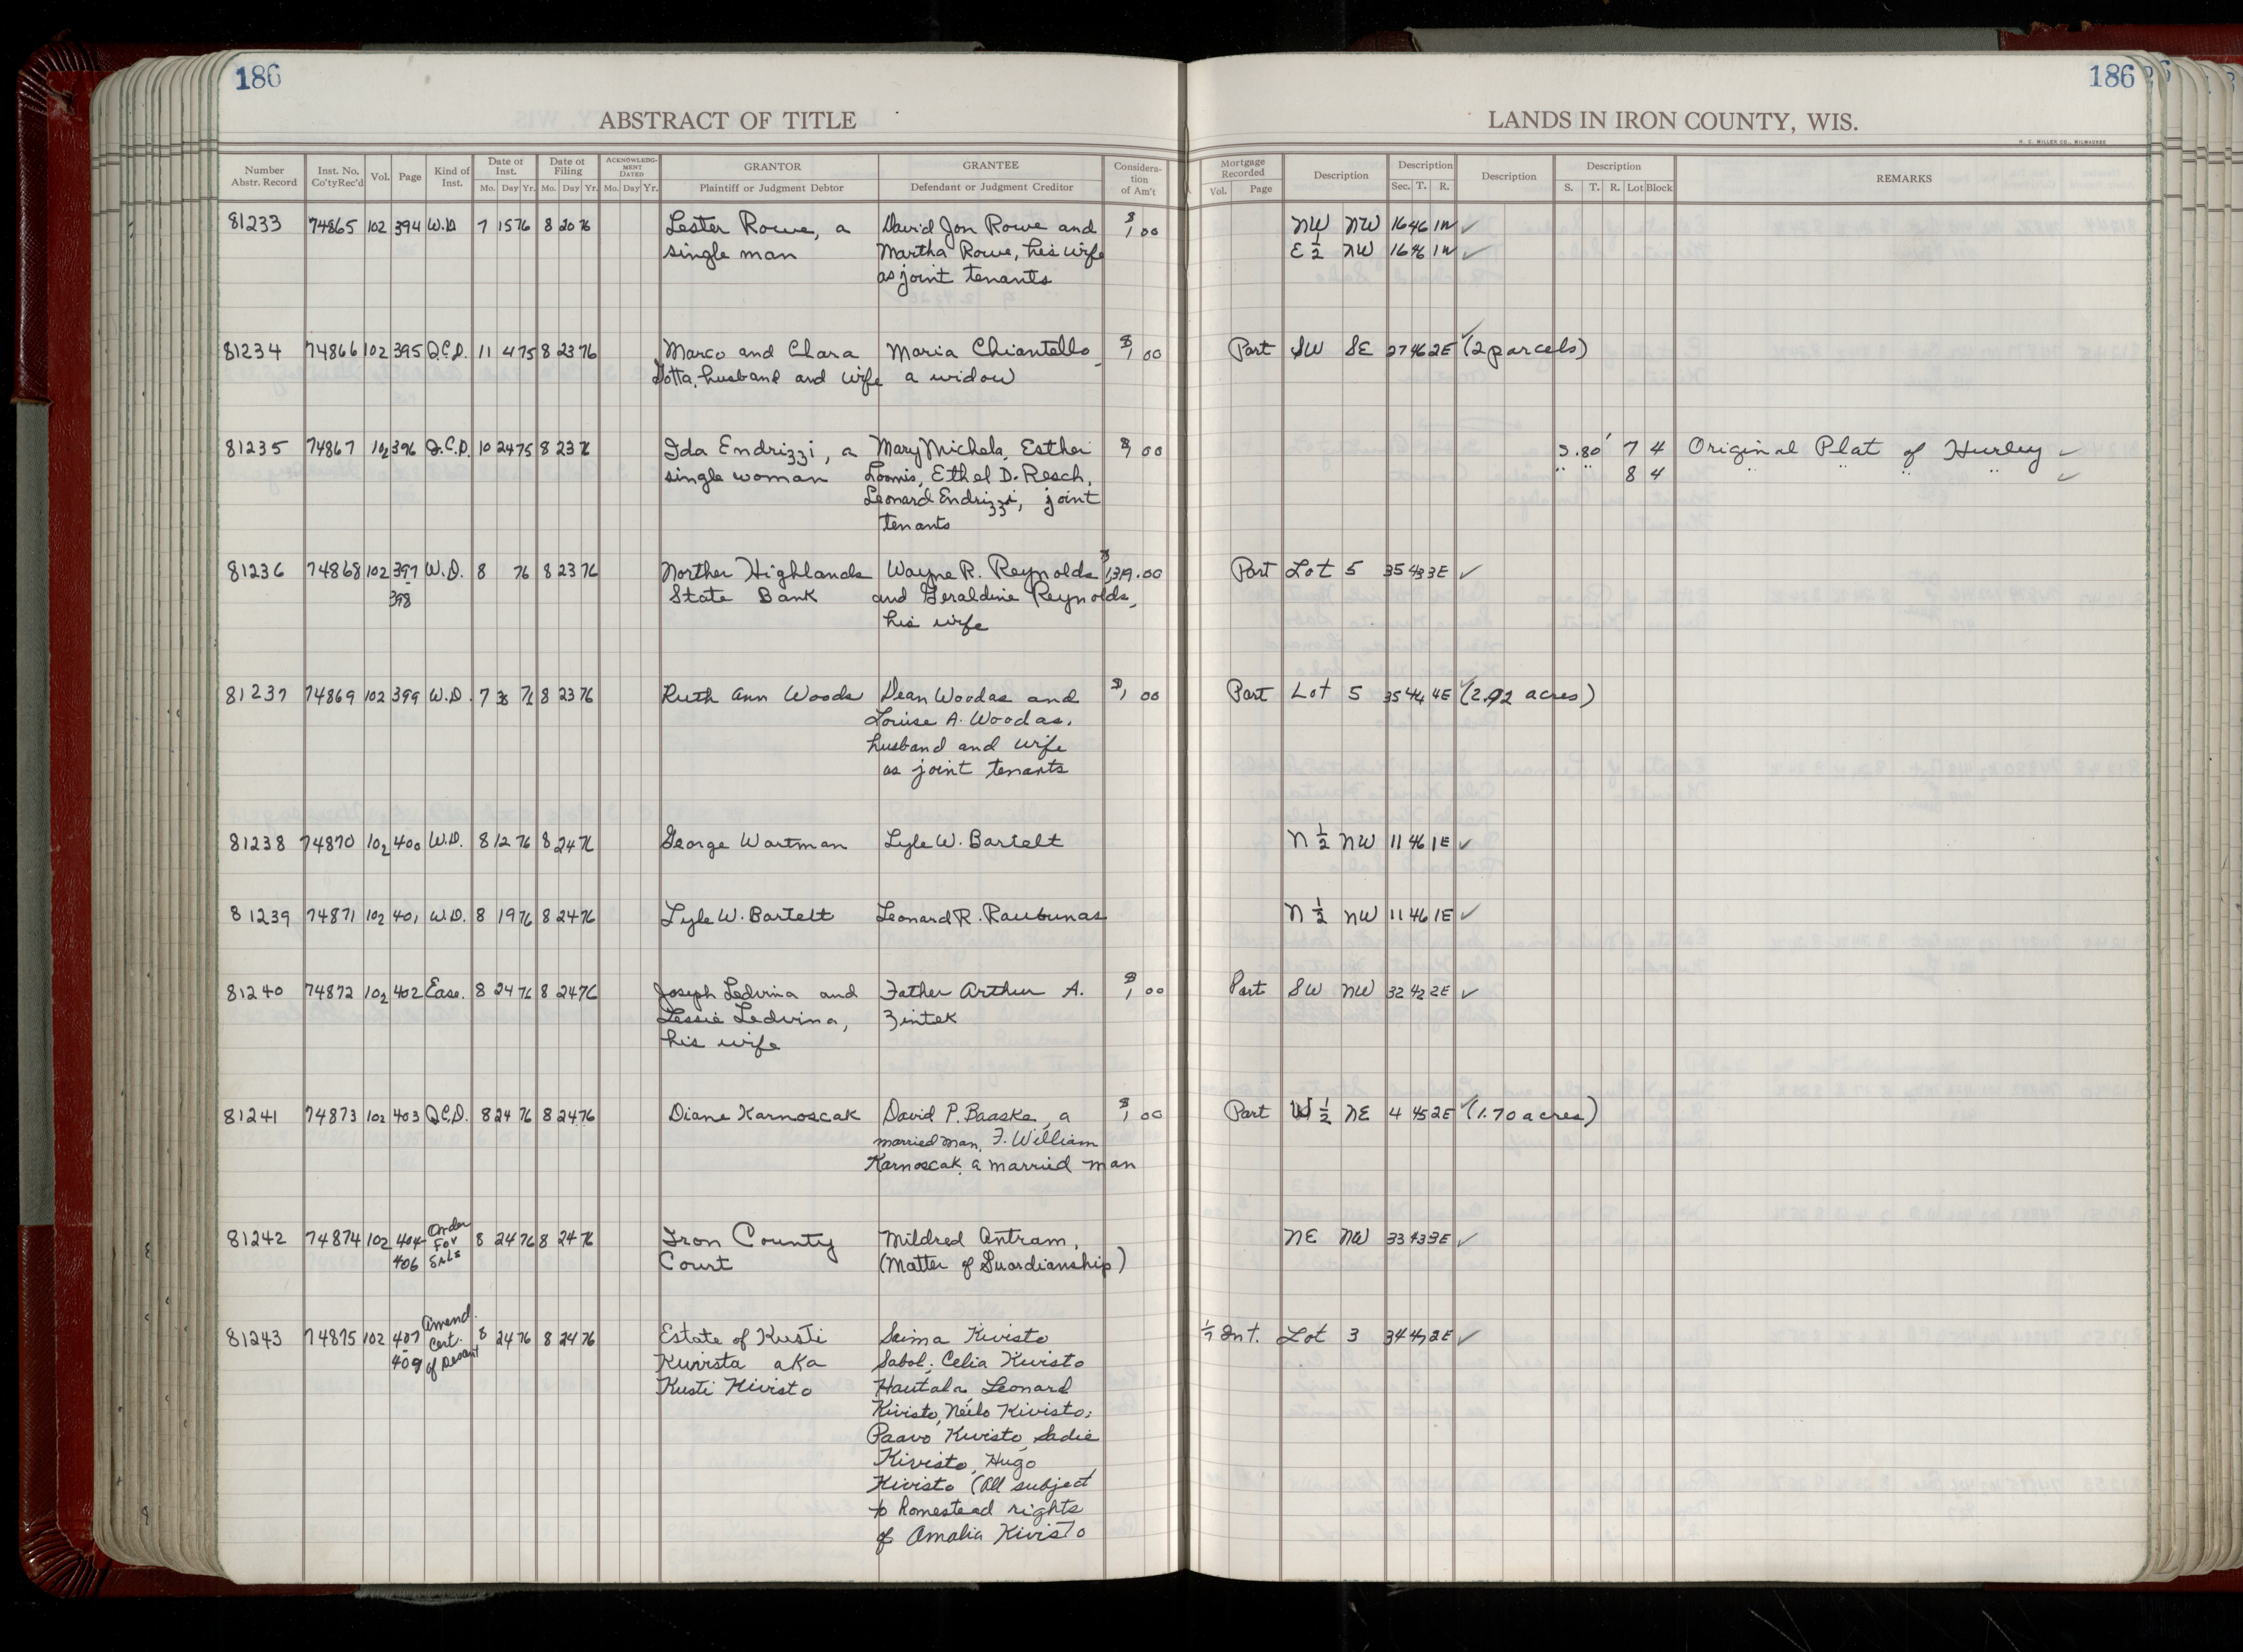 186
186
ABSTRACT OF TITLE
LANDS IN IRON COUNTY, WIS.
H. C. MILLER CO., MILWAUKEE
Number Abstr. Record Inst. No. Co'ty Rec'd Vol. Page Kind of Inst. Date of Inst. Mo. Day Yr. Date of Filing Mo. Day Yr. ACKNOWLEDGMENT DATED Mo. Day Yr. GRANTOR Plaintiff or Judgment Debtor GRANTEE Defendant or Judgment Creditor Consideration of Am't
Mortgage Recorded Vol. Page Description Description Sec. T. R. Description Description S. T. R. Lot Block REMARKS
81233 74865 102 394 W.D 7 15 76 8 20 76 Lester Rowe, a David Jon Rowe and $1 00 NW NW 16 46 1W ✓
single man Martha Rowe, his wife E 1/2 NW 16 46 1W ✓
as joint tenants
81234 74866 102 395 Q.C.D. 11 4 75 8 23 76 Marco and Chara Maria Chiantello, $1 00 Part SW SE 27 46 2E ✓ (2 parcels)
Dotta, husband and wife a widow
81235 74867 102 396 Q.C.D. 10 24 75 8 23 76 Ida Endrizzi, a Mary Michela, Esther $1 00 S.80' 7 4 Original Plat of Hurley ✓
single woman Loomis, Ethel D. Resch, " " 8 4 " " " ✓
Leonard Endrizzi, joint
tenants
81236 74868 102 397 W.D. 8 76 8 23 76 Norther Highlands Wayne R. Reynolds $1,319.00 Part Lot 5 35 43 3E ✓
- 398 State Bank and Geraldine Reynolds,
his wife
81237 74869 102 399 W.D. 7 76 8 23 76 Ruth Ann Woods Dean Woodas and $1 00 Part Lot 5 35 44 4E ✓ (2.92 acres)
Louise A. Woodas,
husband and wife
as joint tenants
81238 74870 102 400 W.D. 8 12 76 8 24 76 George Wartman Lyle W. Bartelt N 1/2 NW 11 46 1E ✓
81239 74871 102 401 W.D. 8 19 76 8 24 76 Lyle W. Bartelt Leonard R. Raubunas N 1/2 NW 11 46 1E ✓
81240 74872 102 402 Ease. 8 24 76 8 24 76 Joseph Ledvina and Father Arthur A. $1 00 Part SW NW 32 42 2E ✓
Ledvina, Zintek
his wife
81241 74873 102 403 Q.C.D. 8 24 76 8 24 76 Diane Karnoscak David P. Baaske, a $1 00 Part W 1/2 NE 4 45 2E ✓ (1.70 acres)
married man, F. William
Karnoscak, a married man
81242 74874 102 404- Order For Sale 8 24 76 8 24 76 Iron County Mildred Antram, NE NW 33 43 3E ✓
406 Court (Matter of Guardianship)
81243 74875 102 407 Amend. Cert. of Descent 8 24 76 8 24 76 Estate of Kusti Saima Kivisto 1/7 Int. Lot 3 34 47 2E ✓
- 409 aka Sabol; Celia Kivisto
Kusti Kivisto Hautala, Leonard
Kivisto, Neilo Kivisto;
Paavo Kivisto, Sadie
Kivisto, Hugo
Kivisto (All subject
to homestead rights
of Amalia Kivisto